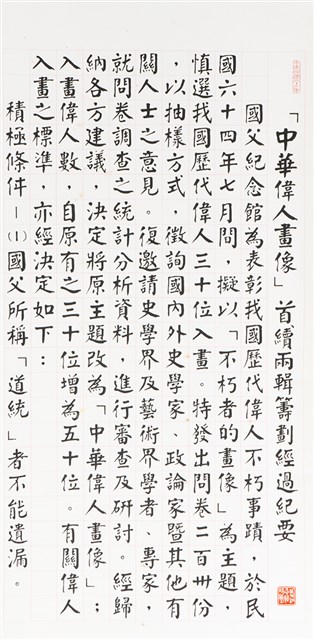 「中華偉人畫像」首續兩輯籌劃經過紀要
國父紀念館為表彰我國歷代偉人不朽事蹟，於民
國六十四年七月間，擬以「不朽者的畫像」為主題，
慎選我國歷代偉人三十位入畫。特發出問卷二百卅份
，以抽樣方式，徵詢國內外史學家、政論家暨其他有
關人士之意見。復邀請史學界及藝術界學者、專家，
就問卷調查之統計分析資料，進行審查及研討。經歸
納各方建議，決定將原主題改為「中華偉人畫像」；
入畫偉人數，自原有之三十位增為五十位。有關偉人
入畫之標準，亦經決定如下：
積極條件－(1)國父所稱「道統」者不能遺漏。